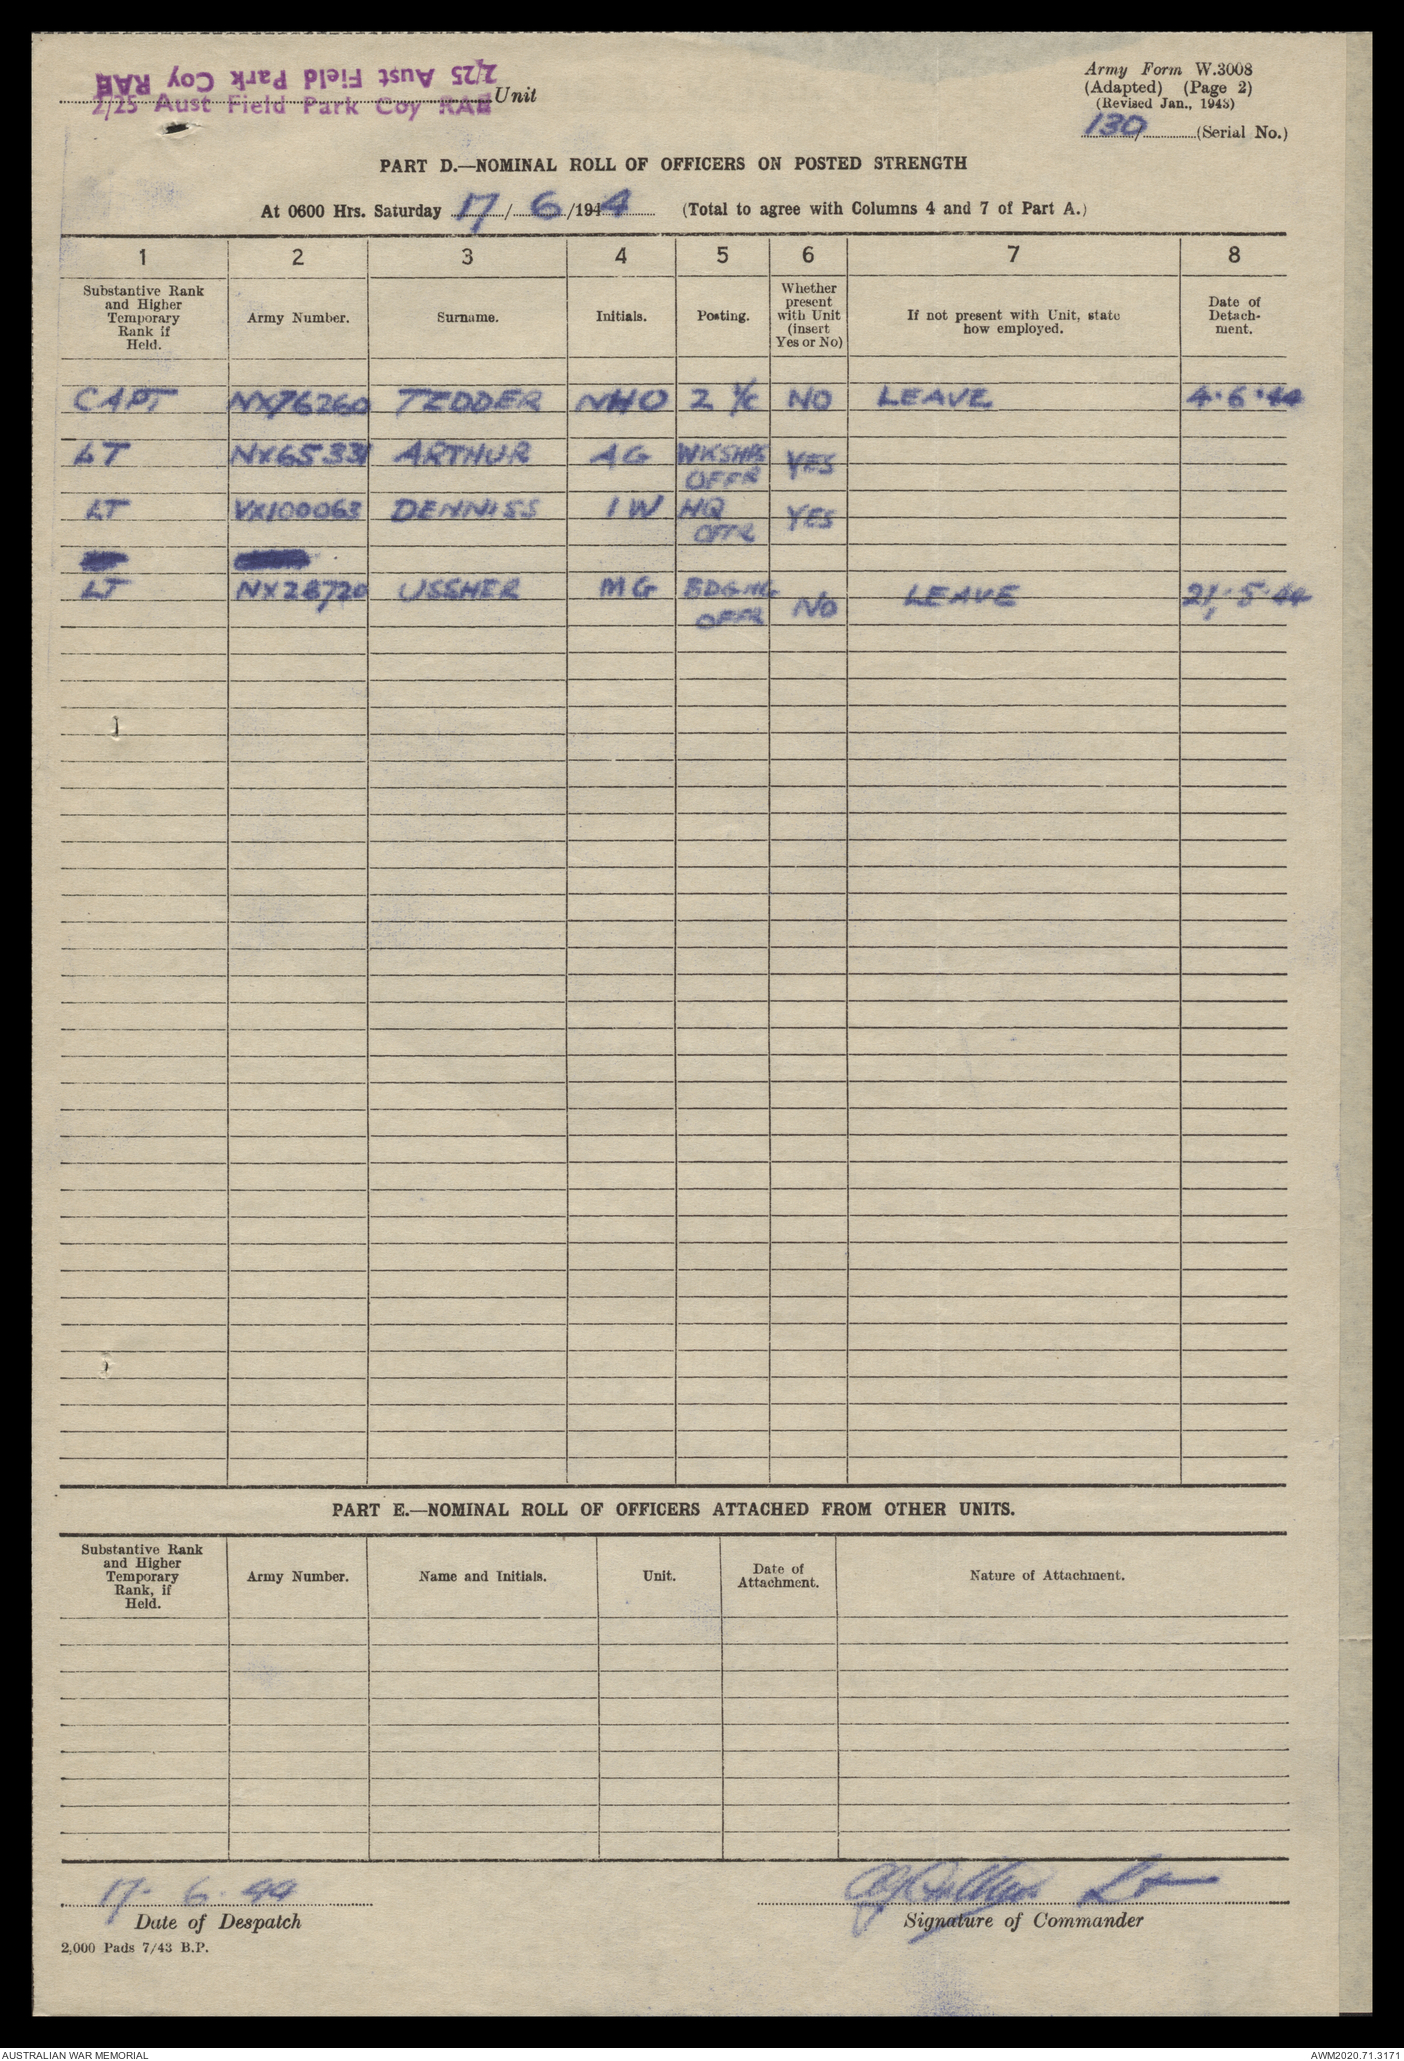 2/25 Aust Field Park Coy RAE
2/25 Aust Field Park Coy RAE Unit
Army Form W.3008
(Adapted) (Page 2)
(Revised Jan., 1943)
130/ (Serial No.)
PART D.—NOMINAL ROLL OF OFFICERS ON POSTED STRENGTH
At 0600 Hrs. Saturday 17/6/1944 (Total to agree with Columns 4 and 7 of Part A.)
1 2 3 4 5 6 7 8
Substantive Rank and Higher Temporary Rank if Held. Army Number. Surname. Initials. Posting. Whether present with Unit (insert Yes or No) If not present with Unit, state how employed. Date of Detach-ment.
CAPT NX76260 TEDDER NHO 2 I/C NO LEAVE 4.6.44
LT NX65331 ARTHUR AG WKSHPS OFFR YES
LT VX100063 DENNISS IW HQ OFFR YES
LT NX28720 USSHER MG BDGING OFFR NO LEAVE 21.5.44
PART E.—NOMINAL ROLL OF OFFICERS ATTACHED FROM OTHER UNITS.
Substantive Rank and Higher Temporary Rank, if Held. Army Number. Name and Initials. Unit. Date of Attachment. Nature of Attachment.
17. 6. 44
Date of Despatch
AG Arthur Lt
Signature of Commander
2,000 Pads 7/43 B.P.
AUSTRALIAN WAR MEMORIAL
AWM2020.71.3171